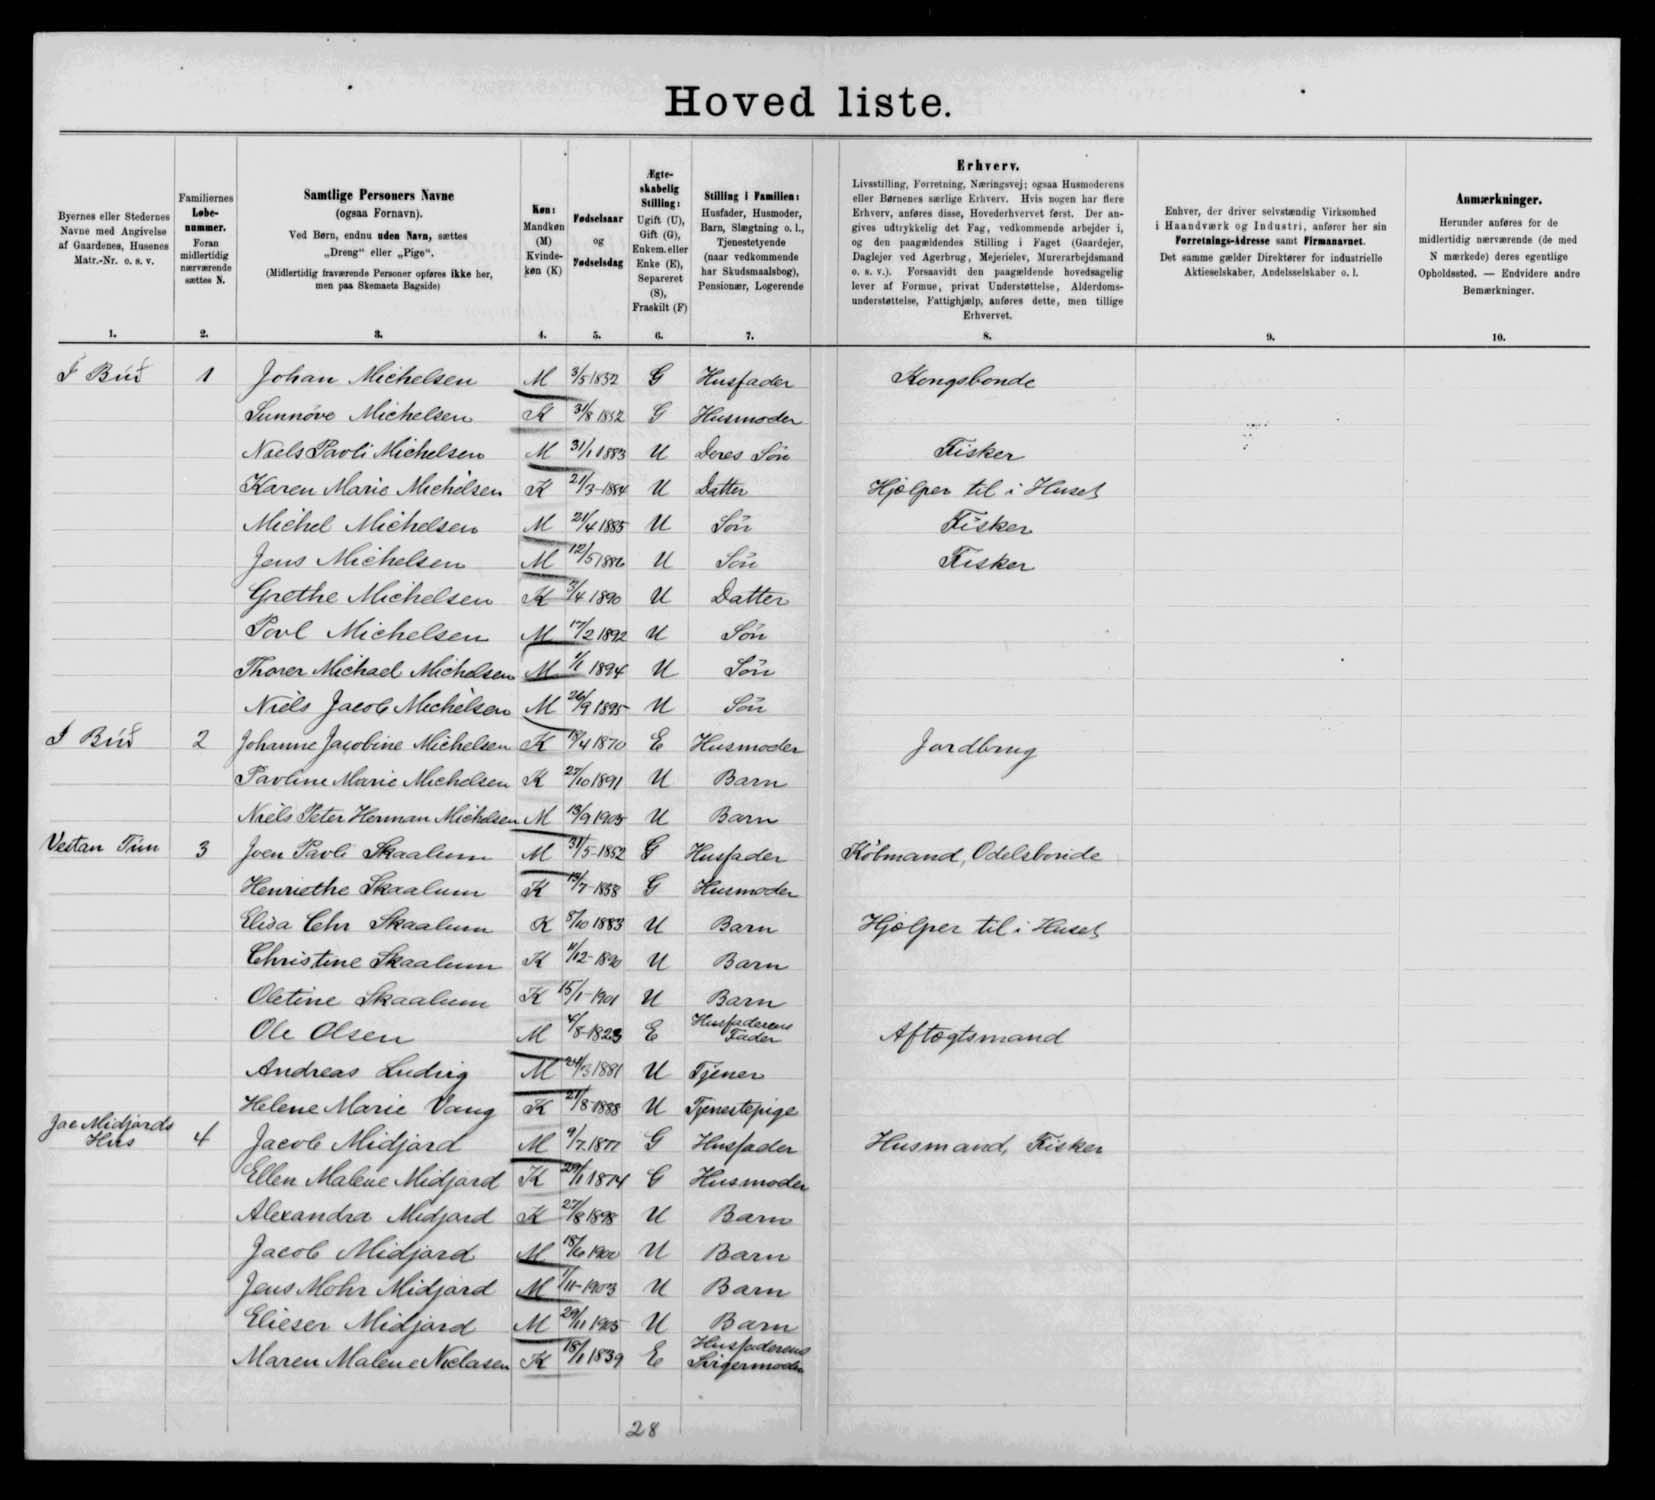 Hoved liste.
Byernes eller Stedernes
Navne med Angivelse
af Gaardenes, Husenes
Matr.-Nr. o. s. v.
1.
Familiernes
Løbe-
nummer.
Foran
midlertidig
nærværende
sættes N.
2.
Samtlige Personers Navne
(ogsaa Fornavn).
Ved Børn, endnu uden Navn, sættes
„Dreng" eller „Pige".
(Midlertidig fraværende Personer opføres ikke her,
men paa Skemaets Bagside)
3.
Køn:
Mandkøn
(M)
Kvinde-
køn (K)
4.
Fødselsaar
og
Fødselsdag
5.
Ægte-
skabelig
Stilling:
Ugift (U),
Gift (G),
Enkem. eller
Enke (E),
Separeret
(S),
Fraskilt (F)
6.
Stilling i Familien:
Husfader, Husmoder,
Barn, Slægtning o. l.,
Tjenestetyende
(naar vedkommende
har Skudsmaalsbog),
Pensionær, Logerende
7.
Erhverv.
Livsstilling, Forretning, Næringsvej; ogsaa Husmoderens
eller Børnenes særlige Erhverv. Hvis nogen har flere
Erhverv, anføres disse, Hovederhvervet først. Der an-
gives udtrykkelig det Fag, vedkommende arbejder i,
og den paagældendes Stilling i Faget (Gaardejer,
Daglejer ved Agerbrug, Mejerielev, Murerarbejdsmand
o. s. v.). Forsaavidt den paagældende hovedsagelig
lever af Formue, privat Understøttelse, Alderdoms-
understøttelse, Fattighjælp, anføres dette, men tillige
Erhvervet.
8.
Enhver, der driver selvstændig Virksomhed
i Haandværk og Industri, anfører her sin
Forretnings-Adresse samt Firmanavnet.
Det samme gælder Direktører for industrielle
Aktieselskaber, Andelsselskaber o. l.
9.
Anmærkninger.
Herunder anføres for de
midlertidig nærværende (de med
N mærkede) deres egentlige
Opholdssted. — Endvidere andre
Bemærkninger.
10.
I Búð 1 Johan Michelsen M 3/5 1852 G Husfader Kongsbonde
Sunnöve Michelsen K 31/8 1852 G Husmoder
Niels Pavli Michelsen M 31/1 1883 U Deres Sön Fisker
Karen Marie Michelsen K 21/3-1884 U Datter Hjælper til i Huset
Michel Michelsen M 21/4 1885 U Sön Fisker
Jens Michelsen M 12/5 1886 U Sön Fisker
Grethe Michelsen K 3/4 1890 U Datter
Povl Michelsen M 17/2 1892 U Sön
Thorer Michael Michelsen M 1/1 1894 U Sön
Niels Jacob Michelsen M 26/9 1895 U Sön
I Búð 2 Johanne Jacobine Michelsen K 18/4 1870 E Husmoder Jordbrug
Pavline Marie Michelsen K 27/10 1891 U Barn
Niels Peter Herman Michelsen M 13/9 1905 U Barn
Vestan Tún 3 Joen Pavli Skaalum M 31/5-1852 G Husfader Köbmand, Odelsbonde
Henriethe Skaalum K 13/7-1858 G Husmoder
Elisa Chr Skaalum K 5/10 1883 U Barn Hjælper til i Huset
Christine Skaalum K 11/12-1890 U Barn
Oletine Skaalum K 15/1-1901 U Barn
Ole Olsen M 4/8-1823 E Husfaderens Fader Aftægtsmand
Andreas Ludvig M 24/3 1881 U Tjener
Helene Marie Vang K 21/8-1888 U Tjenestepige
Jac Midjords
Hús 4 Jacob Midjord M 9/7.1877 G Husfader Husmand, Fisker
Ellen Malene Midjord K 29/1 1874 G Husmoder
Alexandra Midjord K 27/8 1898 U Barn
Jacob Midjord M 18/6 1900 U Barn
Jens Mohr Midjord M 1/11-1903 U Barn
Elieser Midjord M 29/11 1905 U Barn
Maren Malene Niclasen K 18/1 1839 E Husfaderens Svigermoder
28